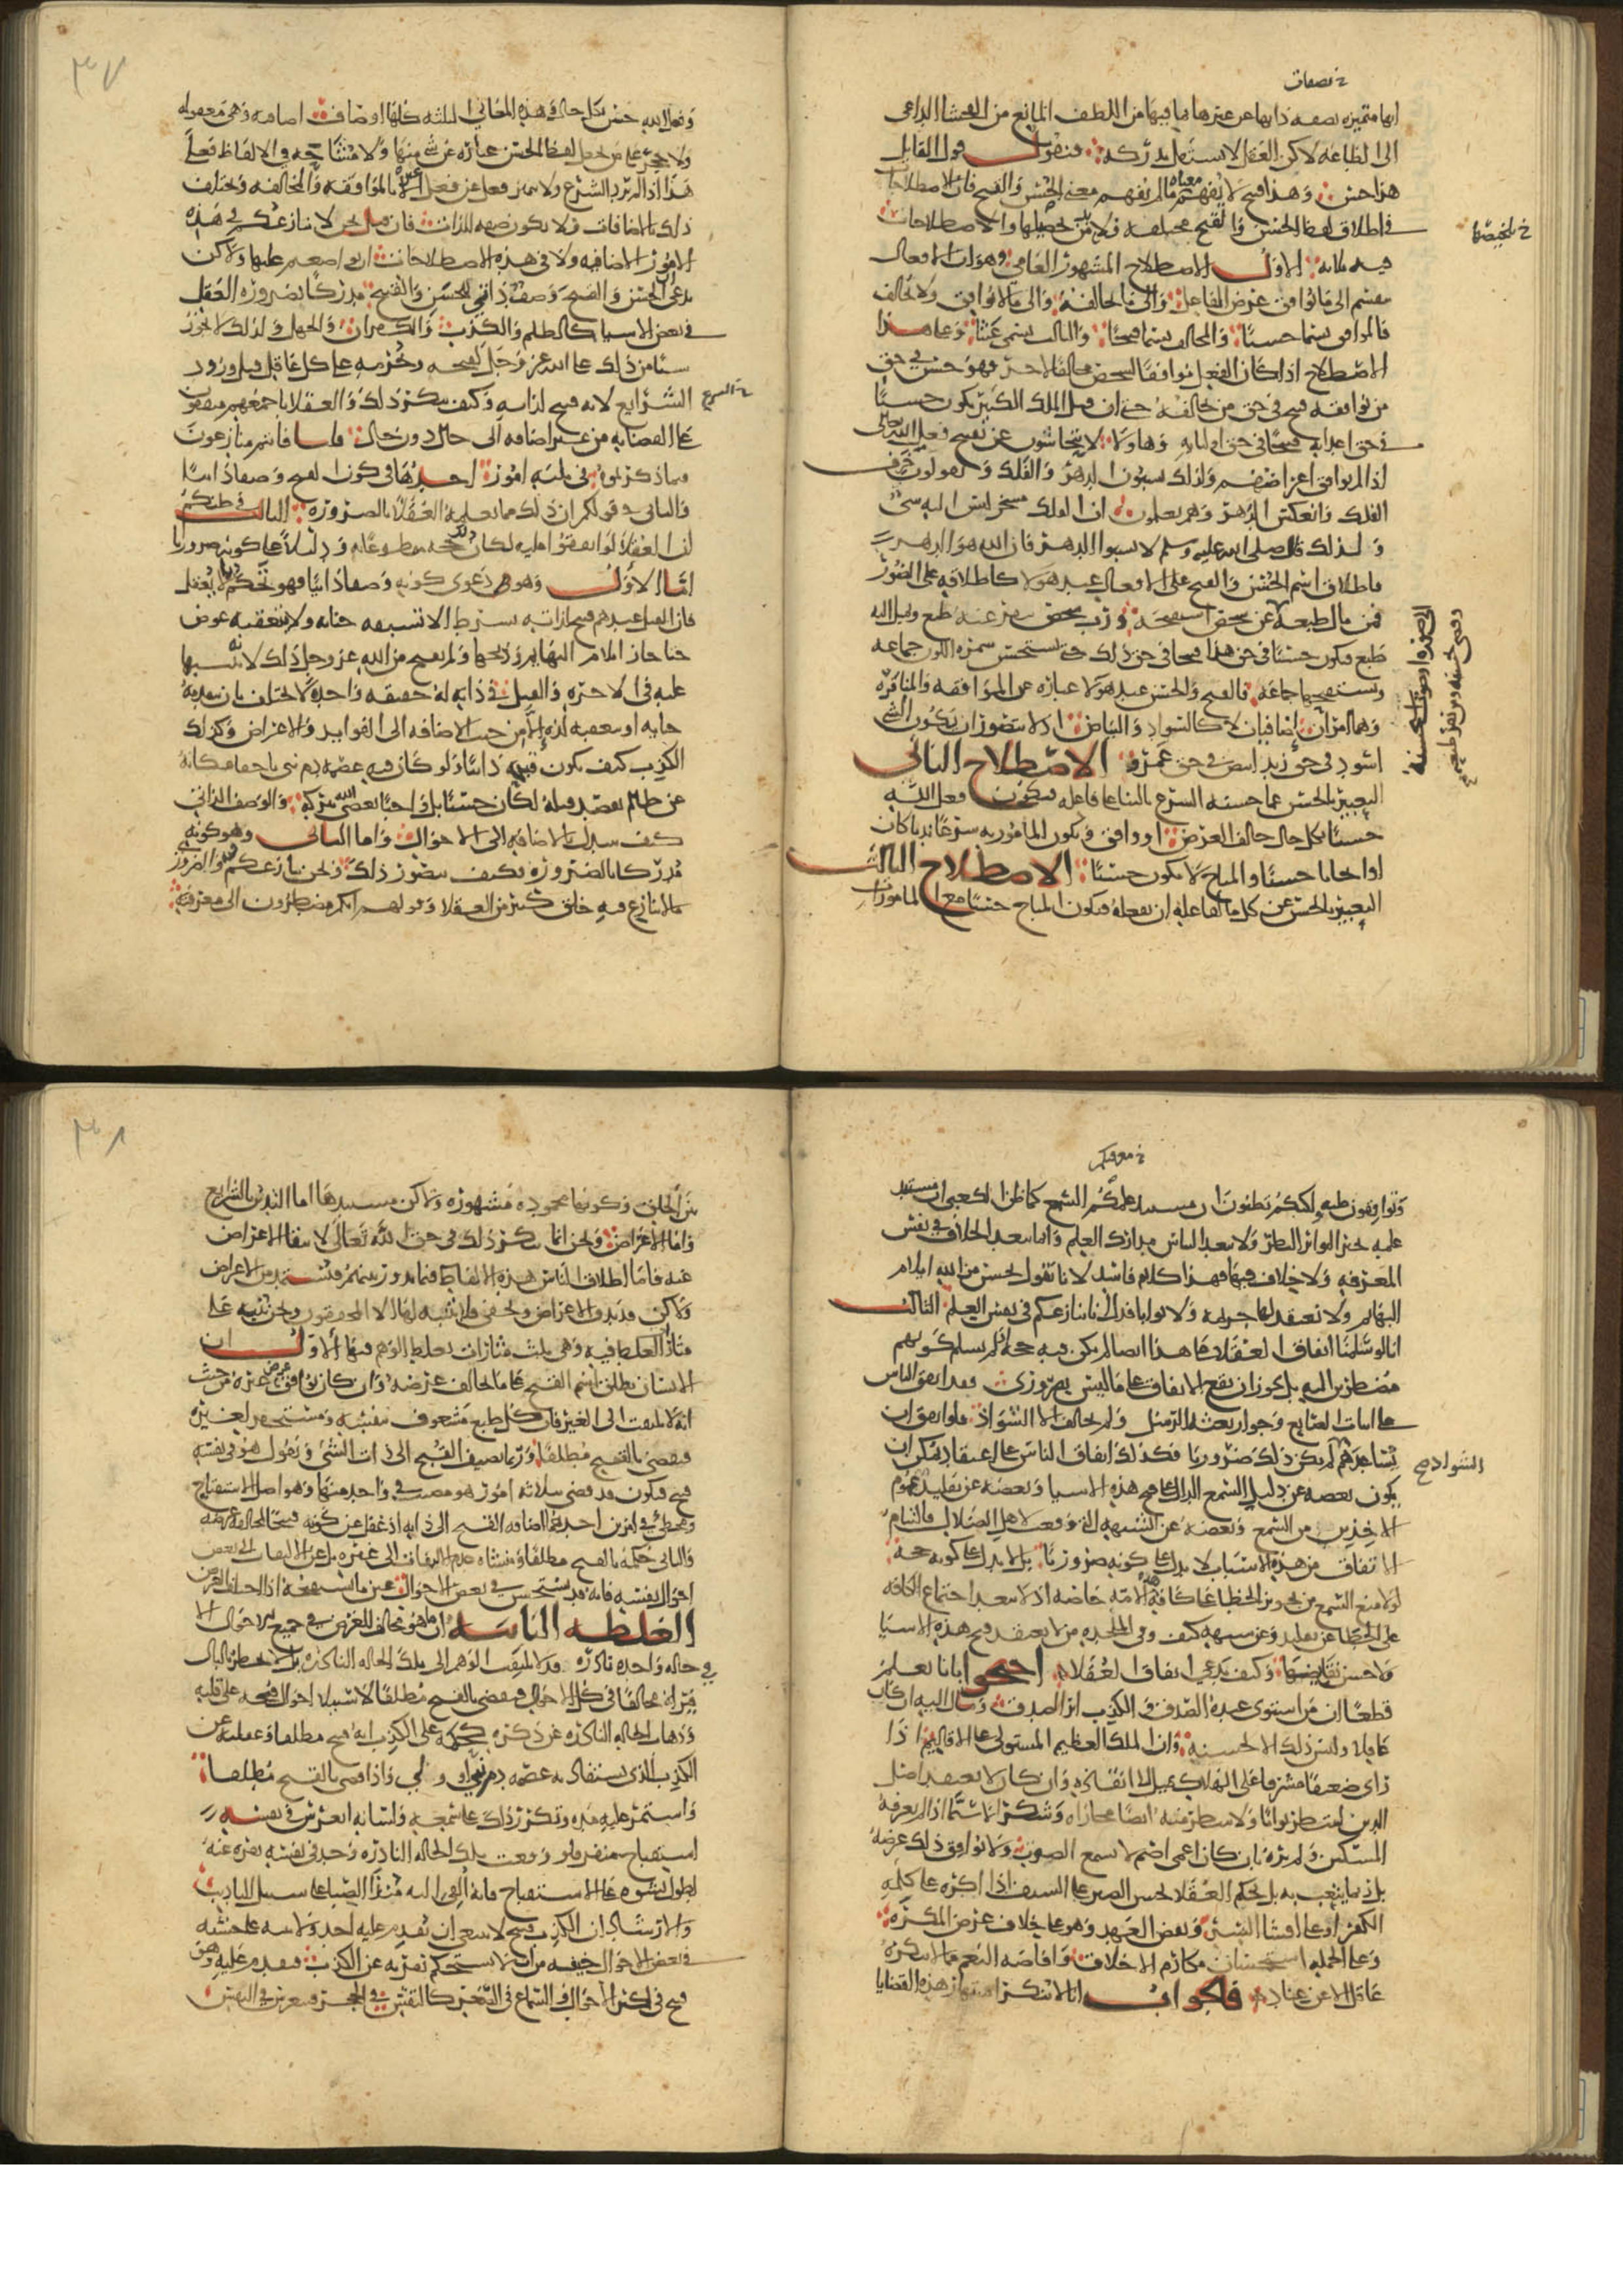 خ بصفات
انها متميزه بصفه ذاتها عن غيرها بما فيها من اللطف المانع من الفحشا الداعي
الى الطاعه لاكن العقل لا يستقل بدركه فنقول قول القايل
هذا حسن وهذا قبيح لا يفهم معناه ما لم يفهم معنى الحسن والقبح فان الاصطلاحات
في اطلاق لفظ الحسن والقبح مختلفه فلا بد من تلخيصها والاصطلاحات
خ تلخيصها
فيه ثلاثه الاول الاصطلاح المشهور العامي وهو ان الافعال
تنقسم الى ما يوافق غرض الفاعل والى ما يخالفه والى ما لا يوافق ولا يخالف
فالموافق يسما حسنا والمخالف يسما قبيحا والثالث يسمى عبثا وعلى هذا
الاصطلاح اذا كان الفعل موافقا لشخص مخالفا لاخر فهو حسن في حق
من يوافقه قبيح في حق من يخالفه حتى ان قتل الملك الكبير يكون حسنا
في حق اعدايه قبيحا في حق اوليايه وهاولا لا يتحاشون عن تقبيح فعل الله تعلى
اذا لم يوافق اغراضهم ولذلك يسبون الدهر والفلك ويقولون خرف
الفلك وانعكس الدهر وهم يعلمون ان الفلك مسخر ليس اليه شي
ولذلك قال صلى الله عليه وسلم لا تسبوا الدهر فان الله هو الدهر
فاطلاق اسم الحسن والقبح على الافعال عند هولا كاطلاقه على الصور
فمن مال طبعه عن شخص استقبحه ورب شخص ينفر عنه طبع ويميل اليه
طبع فيكون حسنا في حق هذا قبيحا في حق ذلك حتى يستحسن سمره اللون جماعه
ويستقبحها جماعه فالقبح والحسن عند هولا عباره عن الموافقه والمنافره
وهما امران اضافيان لا كالسواد والبياض اذ لا يتصور ان يكون الشي
اسود في حق زيد ابيض في حق عمرو الاصطلاح الثاني
التعبير بالحسن عما حسنه الشرع بالثنا على فاعله فيكون فعل الله
حسنا بكل حال خالف الغرض او وافق ويكون المامور به شرعا ندبا كان
او ايجابا حسنا والمباح لا يكون حسنا الاصطلاح الثالث
التعبير بالحسن عن كل ما لفاعله ان يفعله فيكون المباح حسنا مع المامورات
٣٧
وفعل الله حسن بكل حال وهذه المعاني الثلثه كلها اوصاف اضافيه وهي معقوله
ولا حجر على من يجعل لفظ الحسن عباره عن شي منها ولا مشاحه في الالفاظ فعلى
هذا اذا لم يرد الشرع ولا يتميز فعل عن فعل غيره الا بالموافقه والمخالفه ويختلف
ذلك بالاضافات ولا يكون صفه للذات فان قيل نحن لا ننازعكم في هذه
الامور الاضافيه ولا في هذه الاصطلاحات التي اصطلحتم عليها ولاكن
ندعي الحسن والقبح وصف ذاتي للحسن والقبيح مدركا بضروره العقل
في بعض الاشيا كالظلم والكذب والكفران والجهل ولذلك لا نجوز
شيا من ذلك على الله عز وجل لقبحه ونحرمه على كل عاقل قبل ورود
الشرايع لانه قبيح لذاته وكيف ينكر ذلك والعقلا باجمعهم متفقون
خ الشرع
على القضا به من غير اضافه الى حال دون حال قلنا فانتم منازعون
فيما ذكرتموه في ثلثه امور احدها في كون القبح وصفا ذاتيا
والثاني في قولكم ان ذلك مما يعلمه العقلا بالضروره الثالث في ظنكم
ان العقلا لو اتفقوا عليه لكان ذلك حجه مقطوعا به ودليلا على كونه ضروريا
اما الاول وهو دعوى كونه وصفا ذاتيا فهو تحكم بما لا يعقل
فان القتل عندهم قبيح لذاته بشرط الا تسبقه جنايه ولا يتعقبه عوض
حتا جاز ايلام البهايم وذبحها ولم يقبح من الله عز وجل ذلك لانه يثيبها
عليه في الاخره والقتل في ذاته له حقيقه واحده لا تختلف بان تتقدمه
جنايه او تتعقبه لذه الا من حيث الاضافه الى الفوايد والاغراض وكذلك
الكذب كيف يكون قبحه ذاتيا ولو كان فيه عصمه دم نبي باخفا مكانه
عن ظالم يقصد قتله لكان حسنا بل واجبا يعصي الله بتركه والوصف الذاتي
كيف يتبدل بالاضافه الى الاحوال واما الثاني وهو كونه
مدركا بالضروره وكيف يتصور ذلك ونحن ننازعكم فيه والضروري
لا ينازع فيه خلق كثير من العقلا وقولهم انكم مضطرون الى معرفته
خ معرفتكم
وتوافقون عليه ولكنكم تظنون ان مستند علمكم السمع كما ظن الكعبي ان مستند
علمه بخبر التواتر النظر ولا يبعد التباس مدارك العلم وانما يبعد الخلاف في نفس
المعرفه ولا خلاف فيها فهذا كلام فاسد لانا نقول يحسن من الله ايلام
البهايم ولا نعتقد لها جريمه ولا ثوابا فدل انا ننازعكم في نفس العلم الثالث
انا لو سلمنا اتفاق العقلا على هذا ايضا لم يكن فيه حجه اذ لم يسلم كونهم
مضطرين اليه بل يجوز ان يقع الاتفاق على ما ليس بضروري فقد اتفق الناس
على اثبات الصانع وجواز بعثه الرسل ولم يخالف الا الشواذ فلو اتفق ان
ساعدهم لم يكن ذلك ضروريا فكذلك اتفاق الناس على اعتقاد يمكن ان
الشواذ صح
يكون بعضه عن دليل السمع الدال على قبح هذه الاشيا وبعضه عن تقليد عموم
الاخذين من السمع وبعضه عن الشبهه التي وقعت لاهل الضلال فالتئام
الاتفاق من هذه الاسباب لا يدل على كونه ضروريا بل لا يدل على كونه حجه
لولا منع السمع من تجويز الخطا على كافه هذه الامه خاصه اذ لا يبعد اجتماع الكافه
على الخطا عن تقليد وعن شبهه كيف وفي الملحده من لا يعتقد قبح هذه الاشيا
ولا حسن نقايضها وكيف يدعي اتفاق العقلا احتجوا بانا نعلم
قطعا ان من استوى عنده الصدق والكذب اثر الصدق ومال اليه ان كان
عاقلا وليس ذلك الا لحسنه وان الملك العظيم المستولي على الاقاليم اذا
راى ضعيفا مشرفا على الهلاك يميل الى انقاذه وان كان لا يعتقد اصل
الدين لينتظر ثوابا ولا ينتظر منه ايضا مجازاه وشكرا لا سيما اذا لم يعرفه
المسكين ولم يره بان كان اعمى اصم لا يسمع الصوت ولا يوافق ذلك غرضه
بل ربما يتعب به بل يحكم العقلا بحسن الصبر على السيف اذا اكره على كلمه
الكفر او على افشا السر ونقض العهد وهو على خلاف غرض المكره
وعلى الجمله استحسان مكارم الاخلاق وافاضه النعم مما لا ينكره
عاقل الا عن عناد فالجواب انا لا ننكر اشتهار هذه القضايا
٣٨
بين الخلق وكونها محموده مشهوره ولاكن مستندها اما التدين بالشرايع
واما الاغراض ونحن انما ننكر ذلك في حق الله تعالى لانتفا الاغراض
عنه فاما اطلاق الناس هذه الالفاظ فيما يدور بينهم فتستمد من الاغراض
ولاكن قد تدق الاغراض وتخفى فلا يتنبه لها الا المحققون ونحن ننبه على
مثارات الغلط فيه وهي ثلث مثارات يغلط الوهم فيها الاول ان
الانسان يطلق اسم القبيح على ما يخالف غرضه وان كان يوافق غرض غيره من حيث
انه لا يلتفت الى الغير فان كل طبع مشغوف بنفسه ومستحقر لغيره
فيقضي بالقبح مطلقا وربما يضيف القبح الى ذات الشي ويقول هو في نفسه
قبيح فيكون قد قضى بثلاثه امور هو مصيب في واحد منها وهو اصل الاستقباح
ومخطي في امرين احدهما اضافه القبح الى ذاته اذ غفل عن كونه قبيحا لمخالفه غرضه
والثاني حكمه بالقبح مطلقا ومنشاه عدم الالتفات الى غيره بل عن الالتفات الى بعض
احوال نفسه فانه قد يستحسن في بعض الاحوال عين ما يستقبحه اذا اختلف الغرض
الغلطه الثانيه ان ما هو مخالف للغرض في جميع الاحوال الا
في حاله واحده نادره قد لا يلتفت الوهم الى تلك الحاله النادره بل لا يخطر بالبال
فيراه مخالفا في كل الاحوال فيقضي بالقبح مطلقا لاستيلا احوال قبحه على قلبه
وذهاب الحاله النادره عن ذكره كحكمه على الكذب انه قبيح مطلقا وغفلته عن
الكذب الذي يستفاد به عصمه دم نبي او ولي واذا قضى بالقبح مطلقا
واستمر عليه مده وتكرر ذلك على سمعه ولسانه انغرس في نفسه
استقباح منفر فلو وقعت تلك الحاله النادره وجد في نفسه نفره عنه
لطول نشوه على الاستقباح فانه القي اليه منذ الصبا على سبيل التاديب
والارشاد ان الكذب قبيح لا ينبغي ان يقدم عليه احد ولا ينبه على حسنه
في بعض الاحوال خيفه من ان لا تستحكم نفرته عن الكذب فيقدم عليه وهو
قبيح في اكثر الاحوال والسماع في الصغر كالنقش في الحجر فيغرس في النفس